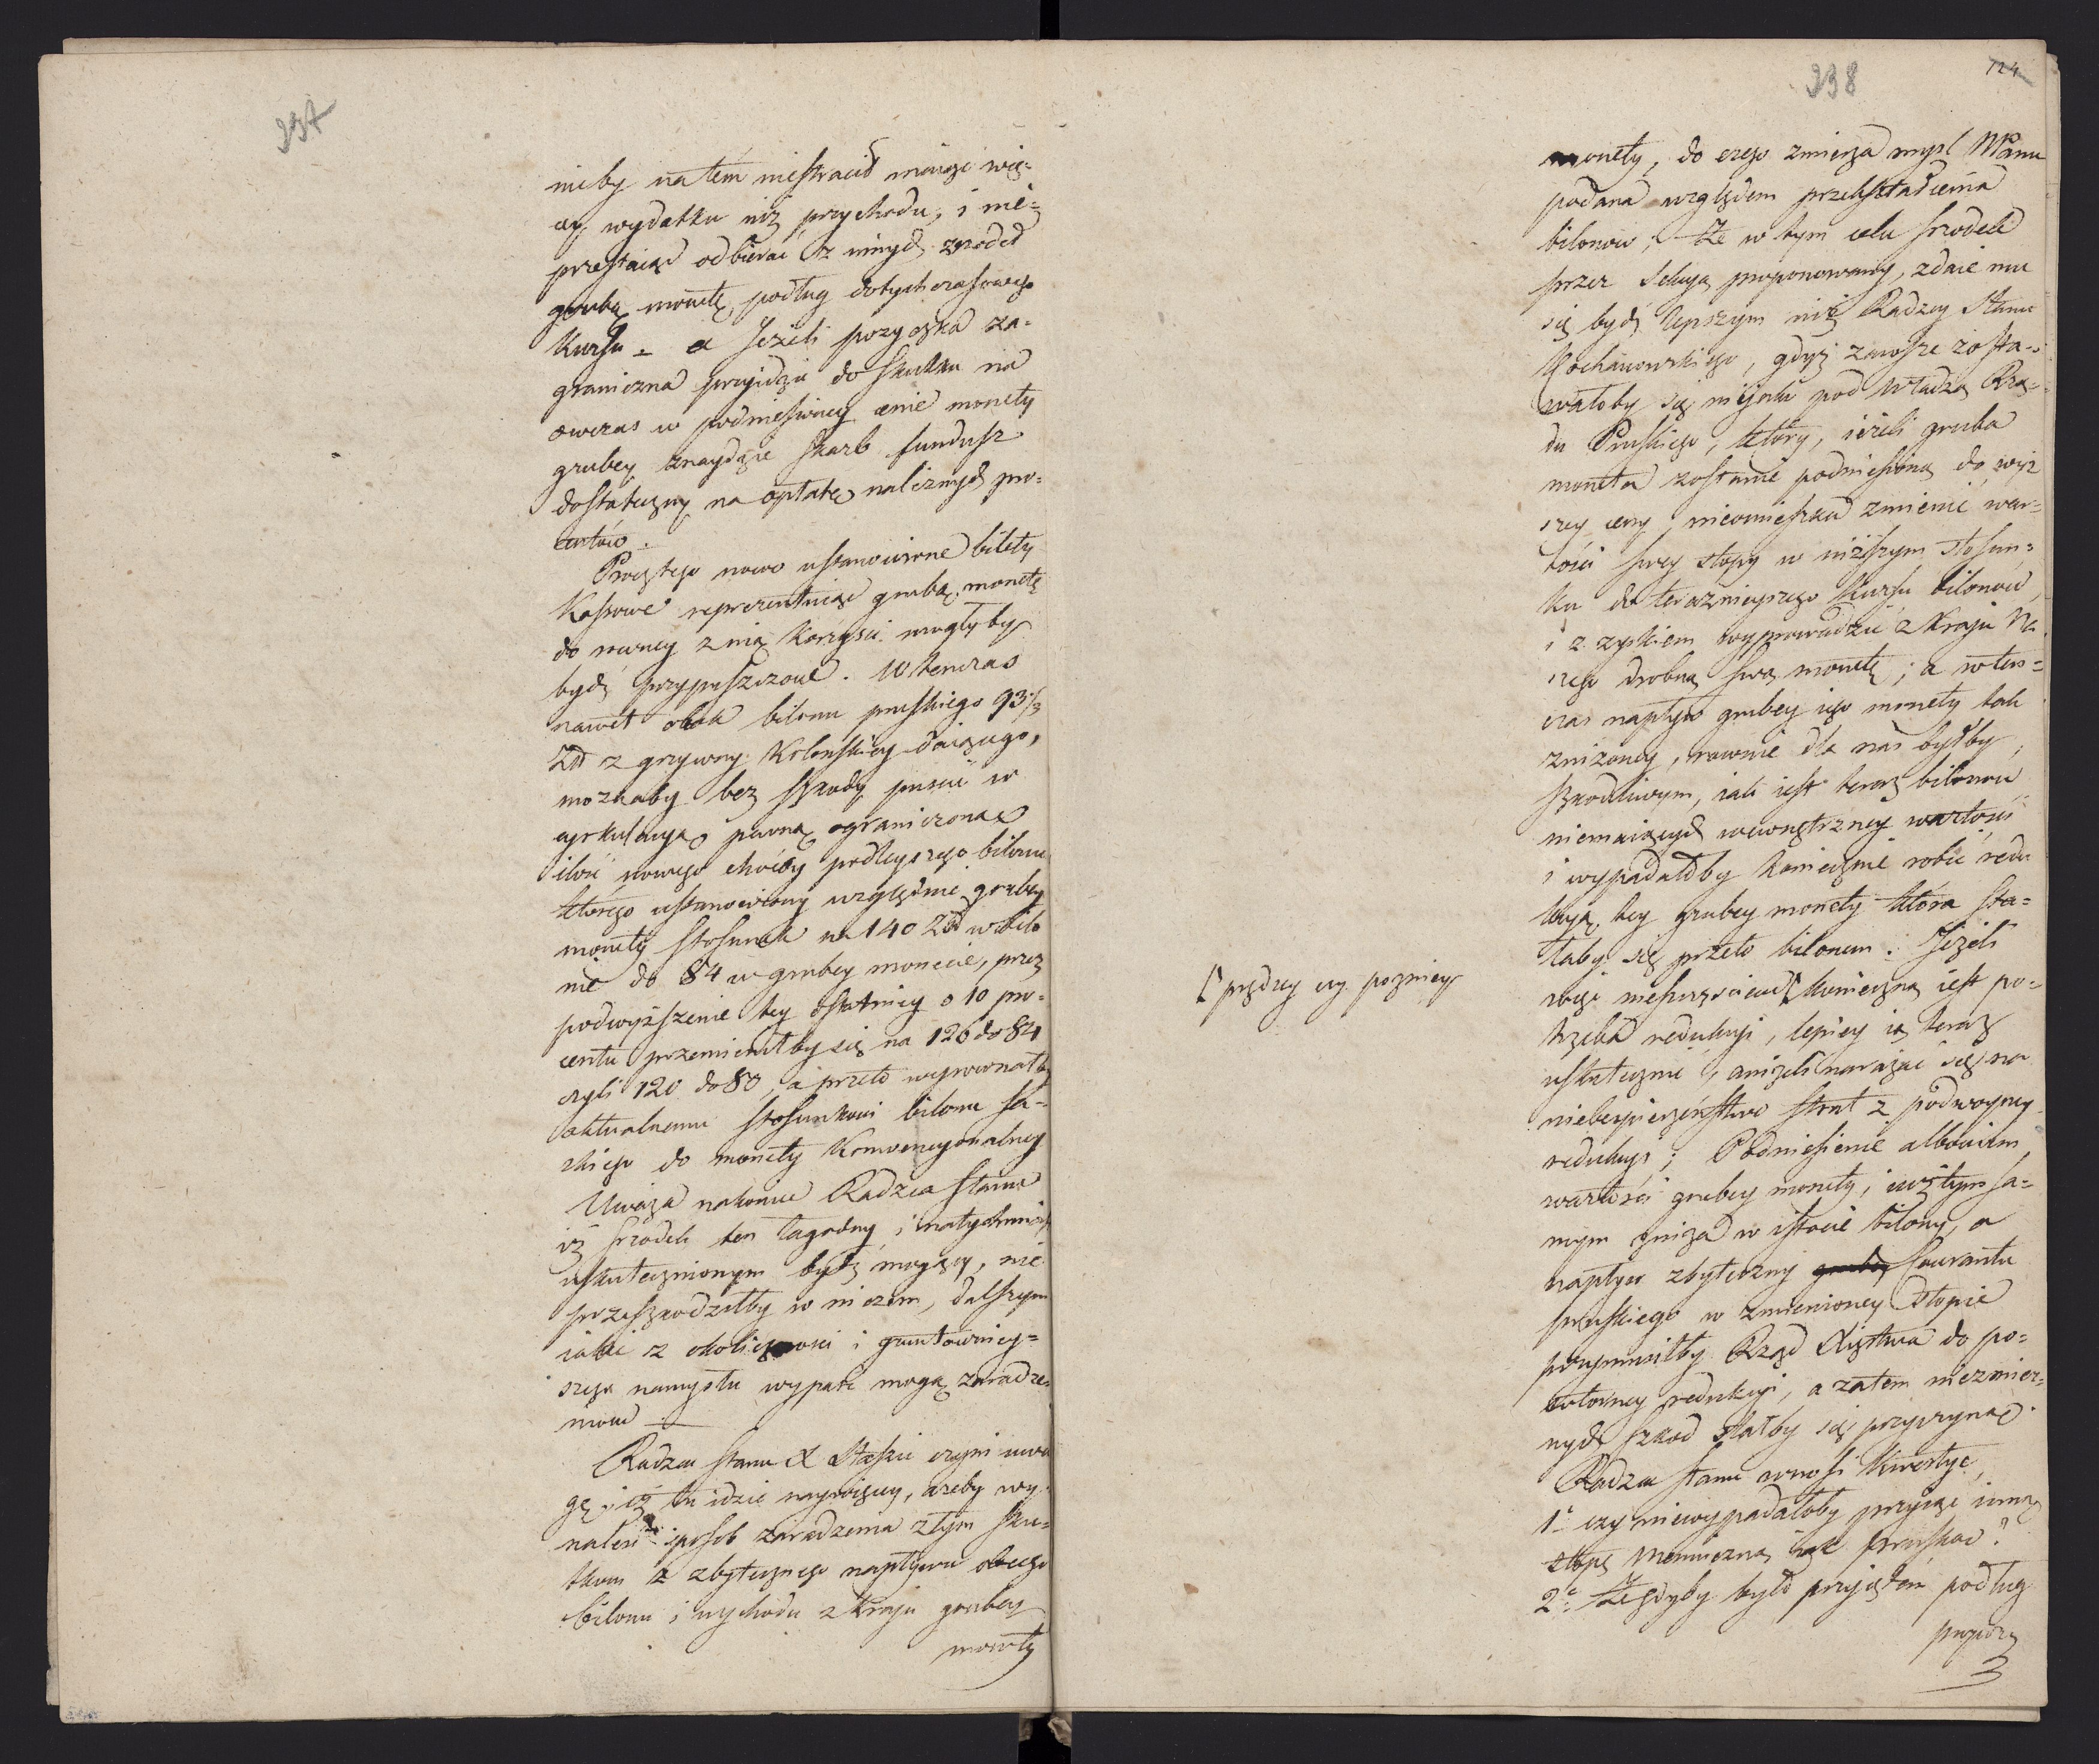 337
nieby na tém niestracił maiąc wię-
cey wydatku niż przychodu, i nie-
przestaiąc odbierać z innych zrodeł
grubą monetę podług dotychczasowego
kursu - a Jeżeli pozyczka za-
graniczna przyidzie do skutku na
owczas w podniesioney cenie monety
grubey znaydzie skarb fundusz
dostateczny na opłatę nalicznych pro-
centów.
Procz tego nowo ustanowione bilety
Kassowe reprezentuiąc grubą monetę
do rowney z nią korzysci mogłyby
bydź przypuszczone. Wtenczas
nawet obok bilonu pruskiego 93⅓
Zł z grzywny Kolonskiey daiącego,
możnaby bez szkody puscić w
cyrkulacyą pewną ograniczoną
ilość nowego choćby podleyszego bilonu
którego ustanowiony względnie grubey
monety stosunek na 140 Zł w bilo
nie do 84 w grubey monecie, przez
podwyższenie tey ostatniey o 10 pro-
centu przemieniłby się na 126 do 84
czyli 120 do 80, a przeto wyrownałby
aktualnemu stosunkowi bilonu Sa-
skiego do monety Konwencyonalney
Uważa nakoniec Radzca Stanu
iż srzodek ten łagodny i natychmiast
uskutecznionym bydź mogący, nie
przeszkodziłby w niczem, dalszym
iakie z okoliczności i gruntowniey-
szego namysłu wypaść mogą zaradze-
niom
Radzca Stanu X Staszic czyni uwa
gę, iż tu idzie naywięcey, ażeby wy-
naleść sposob zaradzenia złym sku-
tkom z zbytecznego napływu obcego
bilonu i wychodu z kraju grubey
monety
338
124
monety, do czego zmierza mysl WPanu
podana względem przekształcenia
bilonow; Że w tym celu srzodek
przez Sekcyą proponowany, zdaie mu
się bydź lepszym niż Radzcy Stanu
Kochanowskiego, gdyż zawsze zosta-
wałoby się niejako pod władzą Rzą-
du Pruskiego, który, ieżeli gruba
moneta zostanie podniesioną do wyż
szey ceny, nieomieszka zmienić war-
tości swey stopy w niższym stosun-
ku do teraznieyszego kursu bilonow,
i z zyskiem wyprowadzić z kraju na
szego drobną swą monetę; a wten-
czas napływ grubey iego monety tak
zniżoney, rownie dla nas byłby
szkodliwym, iak iest teraz bilonow
niemaiących wewnętrzney wartości
i wypadałoby koniecznie robić redu
kcyą tey grubey monety która sta-
łaby się przeto bilonem. Jeżeli
więc nieszczęściem [ konieczną iest po-
[ prędzey czy pozniey
trzeba redukcyi, lepiey ią teraz
uskutecznić, aniżeli narażać się na
niebezpieczeństwo strat z podwoyney
redukcyi; Podniesienie albowiem
wartości grubey monety, iuż tym sa-
mym zniża w istocie bilony, a
napływ zbyteczny grubey Courantu
pruskiego w zmienioney stopie
przymusiłby Rząd Xięstwa do po-
wtorney redukcyi, a zatem niezmier-
nych szkod stałby się przyczyną.
Radzca stanu wnosi kwestye,
1º czy niewypadałoby przyiąć inną
stopę menniczną iak pruską?
2º Że gdyby było przyiętem podług